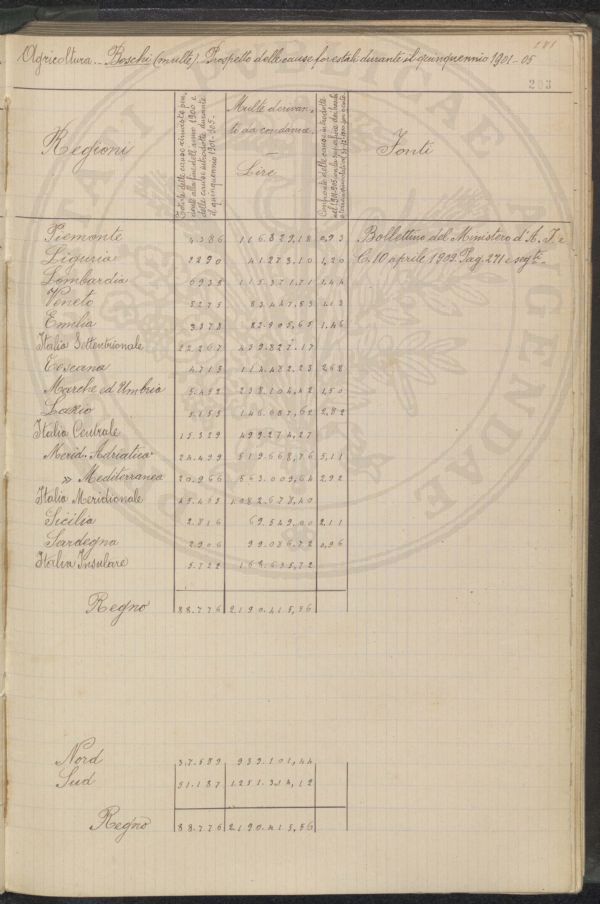 181
Agricoltura - Boschi (multe). Prospetto delle cause forestali durante il quinquennio 1901-05
203
Regioni
Totale delle cause rimaste pen-
denti alla fine dell'anno 1900 e
delle cause introdotte durante
il quinquennio 1901-905.
Multe derivan-
ti da condanne.
Lire
Confronto delle cause introdotte
nel 1901-905 con la superficie dei boschi
Fonti
Piemonte 4.386 116.829,18 0,93 Bollettino del Ministero d'A. I. e
Liguria 2290 41273,10 1,20 C. 10 aprile 1909. Pag. 271 e segti.
Lombardia 6938 115.371,71 1,44
Veneto 5275 83.447,53 1,13
Emilia 3378 82.905,65 1,46
Italia Settentrionale 22.267 439.827,17
Toscana 4.715 114.482,23 2,68
Marche ed Umbria 5.452 238.104,42 1,50
Lazio 5.155 146.687,62 2,82
Italia Centrale 15.329 499.274,27
Merid. Adriatico 24.499 519.668,76 5,11
» Mediterranea 20.966 563.009,64 2,92
Italia Meridionale 45.465 1082.678,40
Sicilia 2.816 69.549,00 2,11
Sardegna 2906 99.086,72 0,96
Italia Insulare 5.722 168.635,72
Regno 88.776 2190.415,56
Nord 37.589 939.101,44
Sud 51.187 1251.314,12
Regno 88.776 2190.415,56